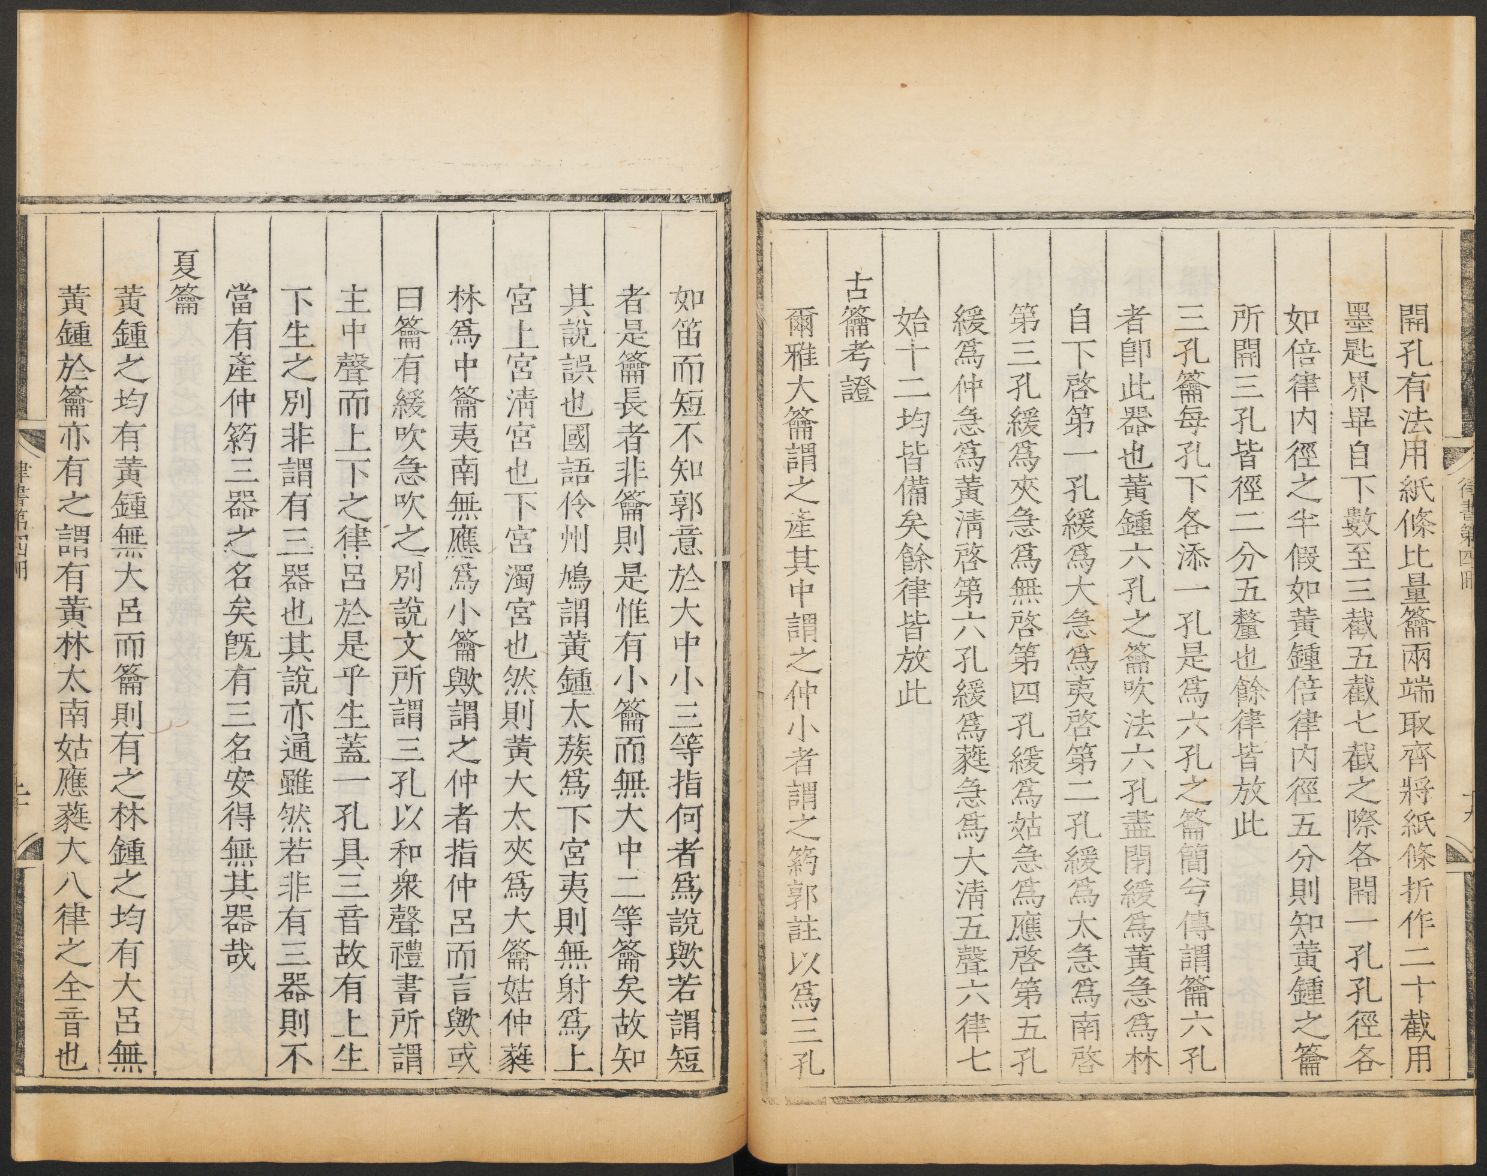 開孔有法用紙條比量籥兩端取齊將紙條折作二十截用
墨匙界畢自下數至三截五截七截之際各開一孔孔徑各
如倍律內徑之半假如黃鍾倍律內徑五分則知黃鍾之籥
所開三孔皆徑二分五釐也餘律皆放此
三孔籥每孔下各添一孔是爲六孔之籥簡兮傳謂籥六孔
者卽此器也黃鍾六孔之籥吹法六孔盡閉緩爲黃急爲林
自下啓第一孔緩爲大急爲夷啓第二孔緩爲太急爲南啓
第三孔緩爲夾急爲無啓第四孔緩爲姑急爲應啓第五孔
緩爲仲急爲黃淸啓第六孔緩爲蕤急爲大淸五聲六律七
始十二均皆備矣餘律皆放此
古籥考證
爾雅大籥謂之產其中謂之仲小者謂之箹郭註以爲三孔
如笛而短不知郭意於大中小三等指何者爲說歟若謂短
者是籥長者非籥則是惟有小籥而無大中二等籥矣故知
其說誤也國語伶州鳩謂黃鍾太蔟爲下宮夷則無射爲上
宮上宮淸宮也下宮濁宮也然則黃大太夾爲大籥姑仲蕤
林爲中籥夷南無應爲小籥歟謂之仲者指仲呂而言歟或
曰籥有緩吹急吹之別說文所謂三孔以和衆聲禮書所謂
主中聲而上下之律呂於是乎生蓋一孔具三音故有上生
下生之別非謂有三器也其說亦通雖然若非有三器則不
當有產仲箹三器之名矣旣有三名安得無其器哉
夏籥
黃鍾之均有黃鍾無大呂而籥則有之林鍾之均有大呂無
黃鍾於籥亦有之謂有黃林太南姑應蕤大八律之全音也
律書第四冊